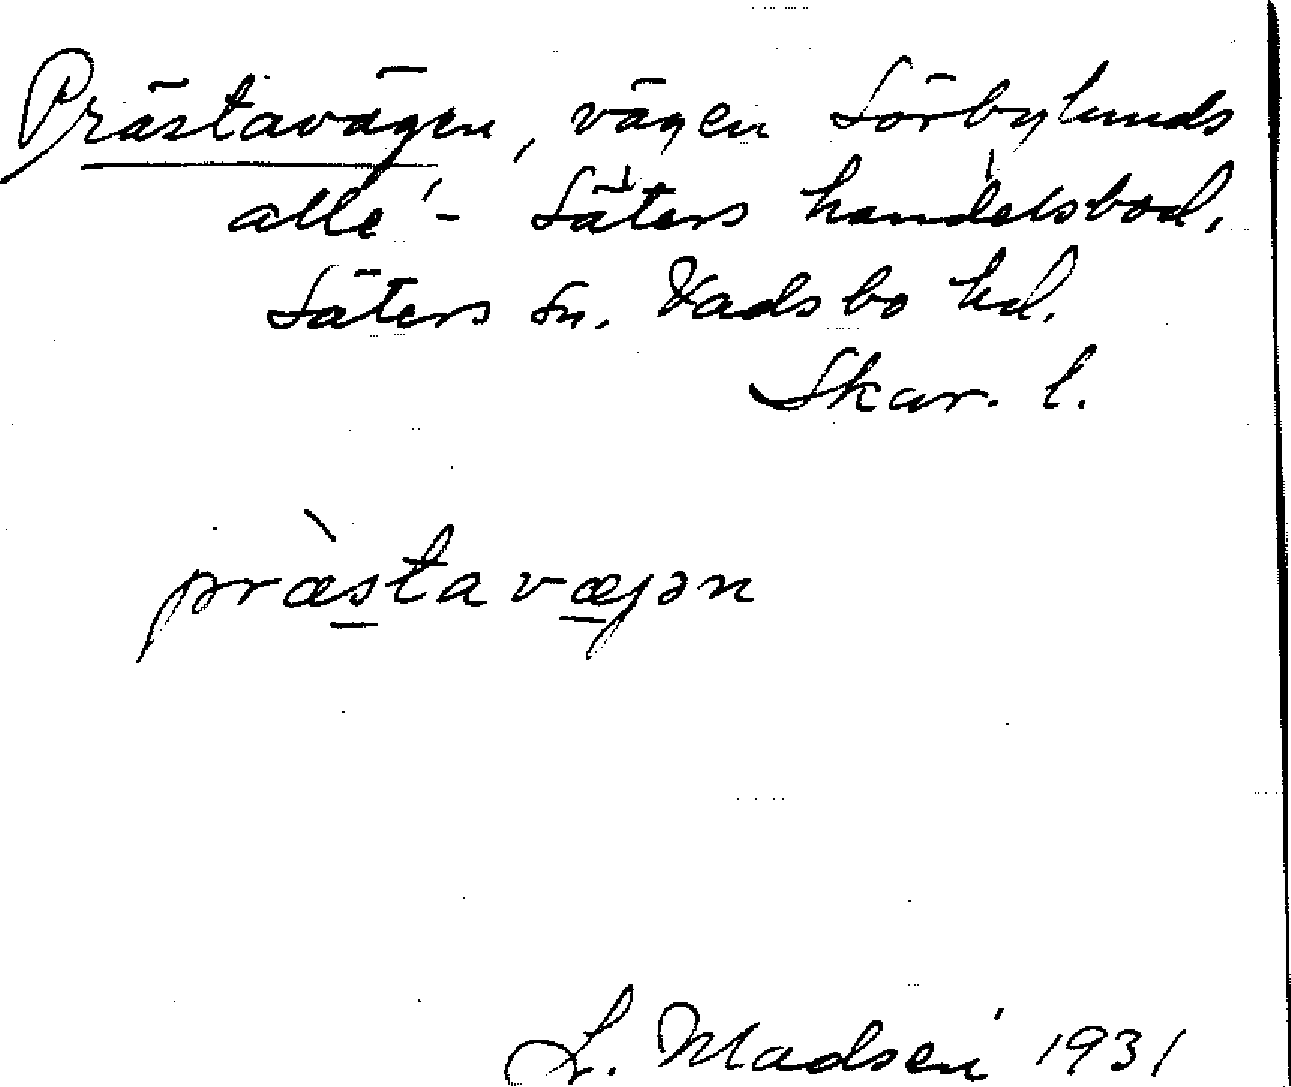 Prästavägen, vägen Sörbylunds
allé - Säters handelsbod,
Säters sn. Vadsbo hd.
Skar. l.
præ̀stavæjən
L. Madsén 1931